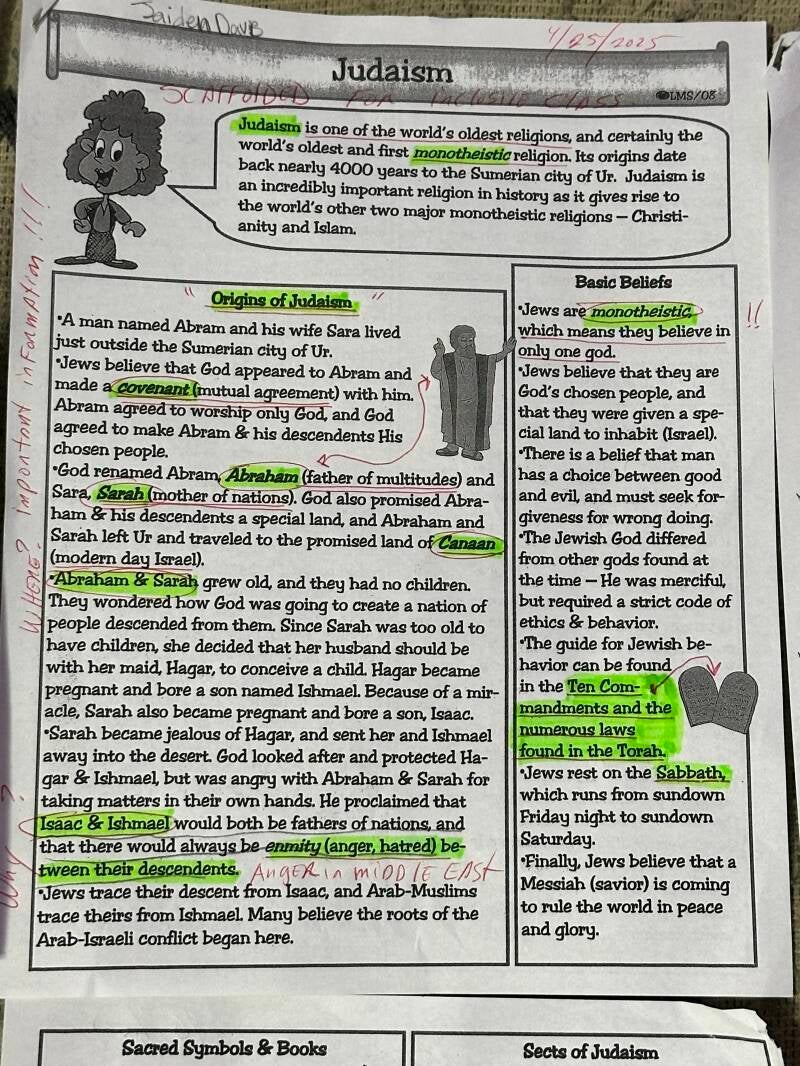 Jaiden Davis
4/25/2025
Judaism
SCAFFOLDED FOR INCLUSIVE CLASS
LMS/08
Judaism is one of the world's oldest religions, and certainly the
world's oldest and first monotheistic religion. Its origins date
back nearly 4000 years to the Sumerian city of Ur. Judaism is
an incredibly important religion in history as it gives rise to
the world's other two major monotheistic religions — Christi-
anity and Islam.
WHERE? important information!!!
WHY?
" Origins of Judaism "
•A man named Abram and his wife Sara lived
just outside the Sumerian city of Ur.
•Jews believe that God appeared to Abram and
made a covenant (mutual agreement) with him.
Abram agreed to worship only God, and God
agreed to make Abram & his descendents His
chosen people.
•God renamed Abram, Abraham (father of multitudes) and
Sara, Sarah (mother of nations). God also promised Abra-
ham & his descendents a special land, and Abraham and
Sarah left Ur and traveled to the promised land of Canaan
(modern day Israel).
•Abraham & Sarah grew old, and they had no children.
They wondered how God was going to create a nation of
people descended from them. Since Sarah was too old to
have children, she decided that her husband should be
with her maid, Hagar, to conceive a child. Hagar became
pregnant and bore a son named Ishmael. Because of a mir-
acle, Sarah also became pregnant and bore a son, Isaac.
•Sarah became jealous of Hagar, and sent her and Ishmael
away into the desert. God looked after and protected Ha-
gar & Ishmael, but was angry with Abraham & Sarah for
taking matters in their own hands. He proclaimed that
Isaac & Ishmael would both be fathers of nations, and
that there would always be enmity (anger, hatred) be-
tween their descendents. ANGER in MIDDLE EAST
•Jews trace their descent from Isaac, and Arab-Muslims
trace theirs from Ishmael. Many believe the roots of the
Arab-Israeli conflict began here.
Basic Beliefs
•Jews are monotheistic, !!
which means they believe in
only one god.
•Jews believe that they are
God's chosen people, and
that they were given a spe-
cial land to inhabit (Israel).
•There is a belief that man
has a choice between good
and evil, and must seek for-
giveness for wrong doing.
•The Jewish God differed
from other gods found at
the time — He was merciful,
but required a strict code of
ethics & behavior.
•The guide for Jewish be-
havior can be found
in the Ten Com-
mandments and the
numerous laws
found in the Torah.
•Jews rest on the Sabbath,
which runs from sundown
Friday night to sundown
Saturday.
•Finally, Jews believe that a
Messiah (savior) is coming
to rule the world in peace
and glory.
Sacred Symbols & Books
Sects of Judaism